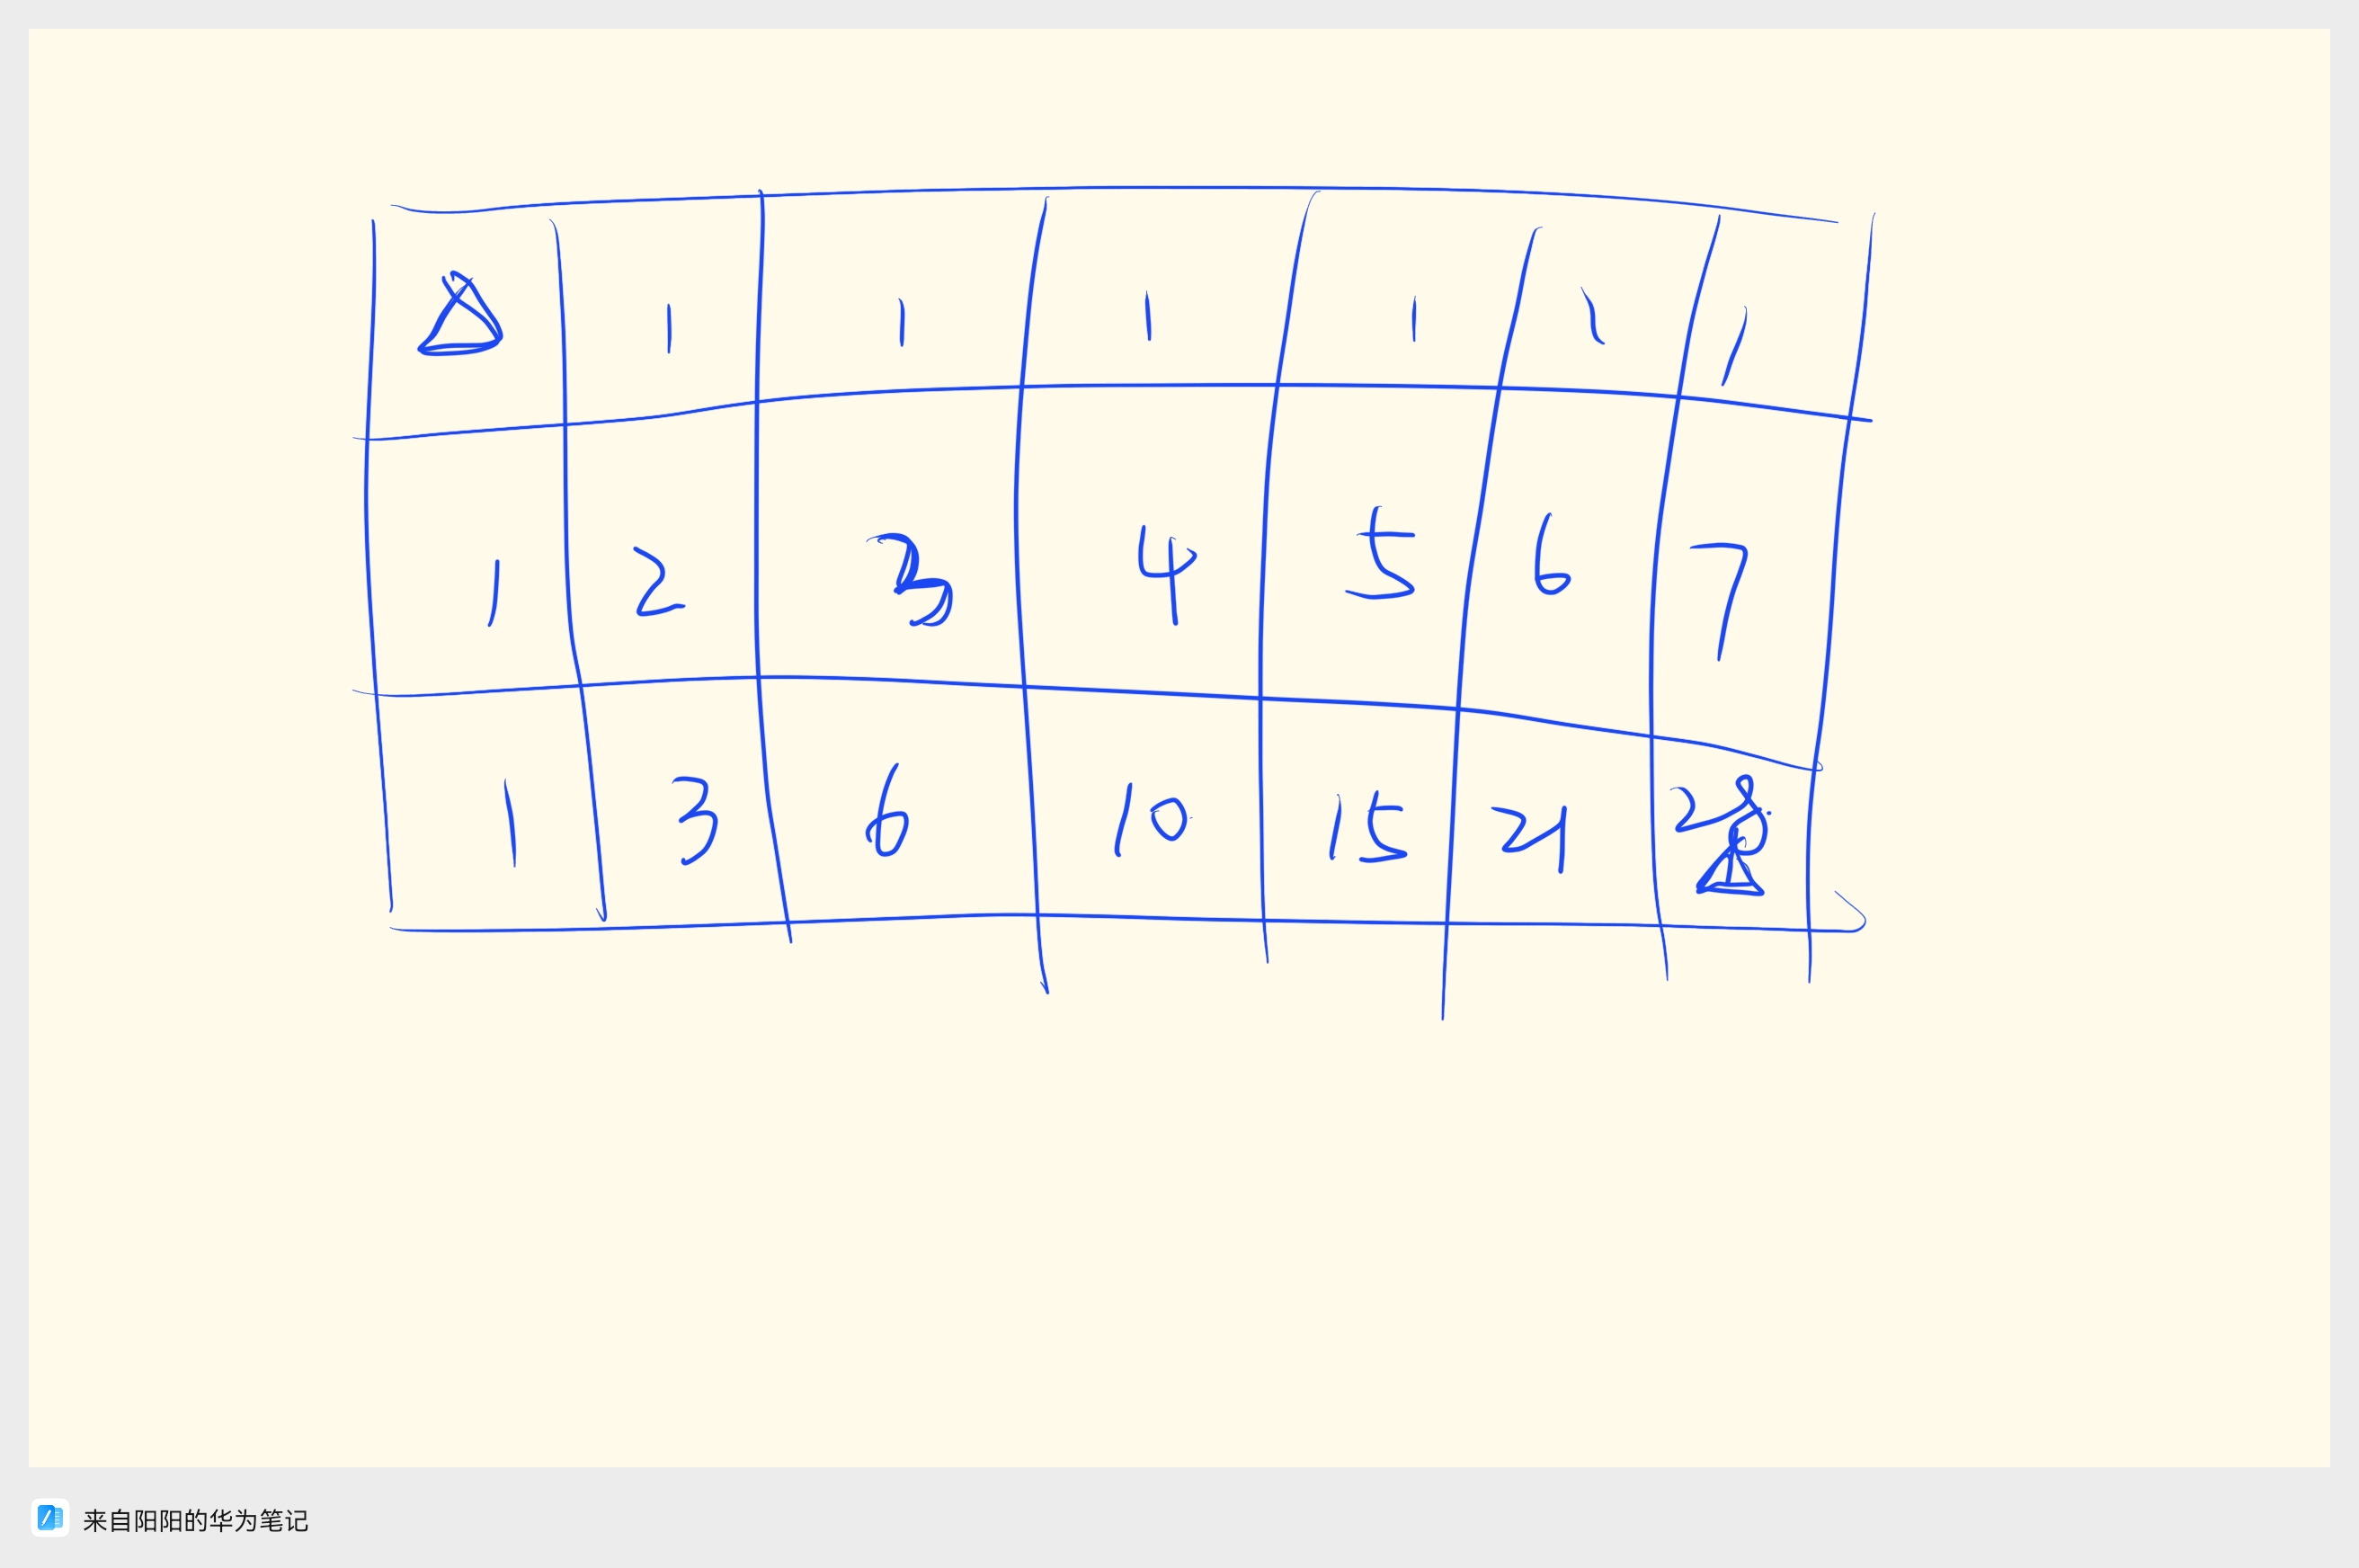 1 1 1 1 1 1
1 2 3 4 5 6 7
1 3 6 10 15 21 28
来自阳阳的华为笔记